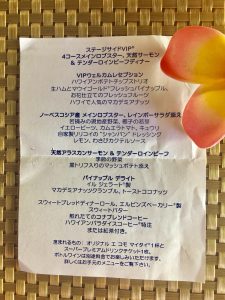 ステージサイドVIP®
4コースメインロブスター、天然サーモン
& テンダーロインビーフディナー
VIPウェルカムレセプション
ハワイアンポテトチップストリオ
生ハムとマウイゴールド®フレッシュパイナップル、
お花仕立てのフレッシュフルーツ
ハワイで人気のマカデミアナッツ
ノーベスコシア産 メインロブスター、レインボーサラダ添え
若摘みの現地産野菜、椰子の若芽
イエロービーツ、カムエラトマト、キュウリ
自家製リコイの「シャンパン」ドレッシング
レモン、わさびカクテルソース
天然アラスカンサーモン & テンダーロインビーフ
季節の野菜
黒トリフ入りのマッシュポテト添え
パイナップル デライト
イル ジェラード®製
マカデミアナッツクランブル、トーストココナッツ
スウィートブレッドディナーロール、エルビンズベーカリー®製
スウィートバター
煎れたてのコナブレンドコーヒー
ハワイアンパラダイスコーヒー®特注
または紅茶付き。
含まれるもの: オリジナル エ コモ マイタイ®1杯と
スーパープレミアムドリンクチケット1枚。
ボトルワインは別途料金でお楽しみいただけます。
詳しくはお手元のメニューをご覧下さい。